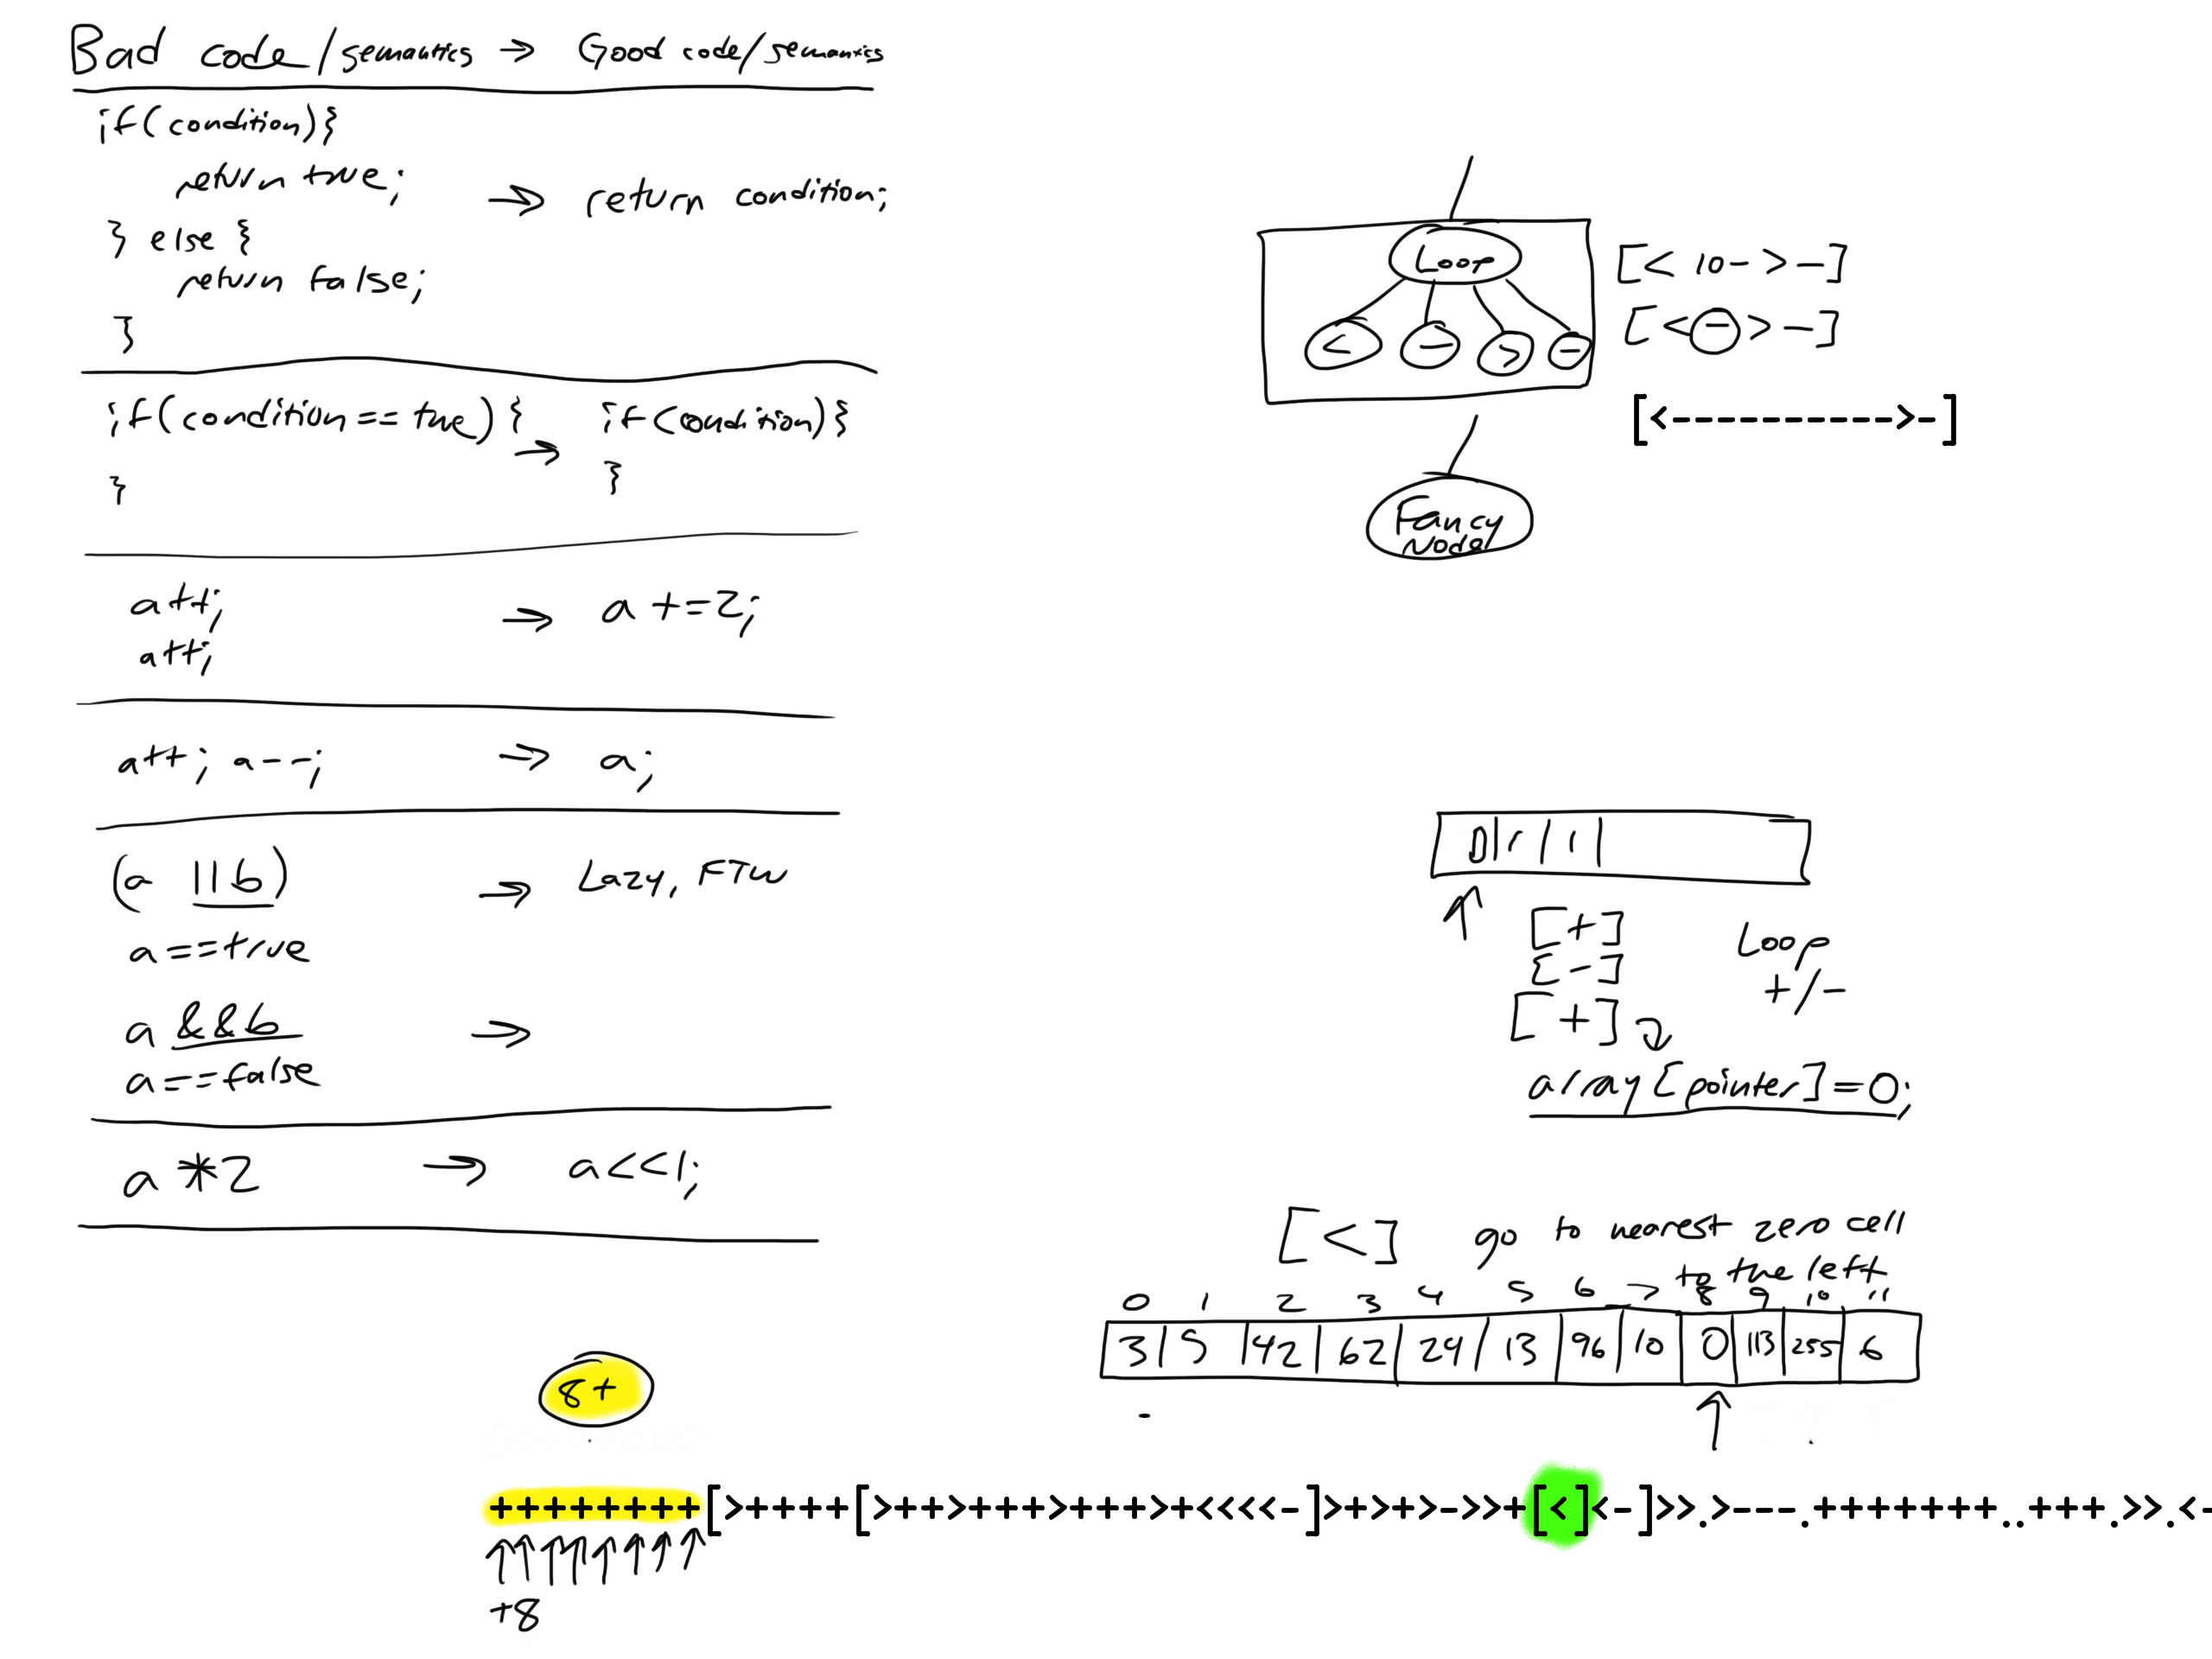 Bad code/semantics → Good code/semantics
if(condition){
return true;
→ return condition;
} else {
return false;
}
if(condition == true) { → if(condition){
} }
a++; → a += 2;
a++;
a++; a--; → a;
(a || b) → Lazy, FTW
a==true
a && b →
a==false
a * 2 → a<<1;
Loop
< - > -
[< 10- >-]
[< - >-]
[<---------->-]
Fancy
Node
[+]
[-]
[+]
Loop
+/-
array[pointer]=0;
[<] go to nearest zero cell
to the left
0 1 2 3 4 5 6 7 8 9 10 11
3 5 42 62 24 13 96 10 0 113 255 6
8+
++++++++[>++++[>++>+++>+++>+<<<<-]>+>+>->>+[<]<-]>>.>---.+++++++..+++.>>.<-
+8